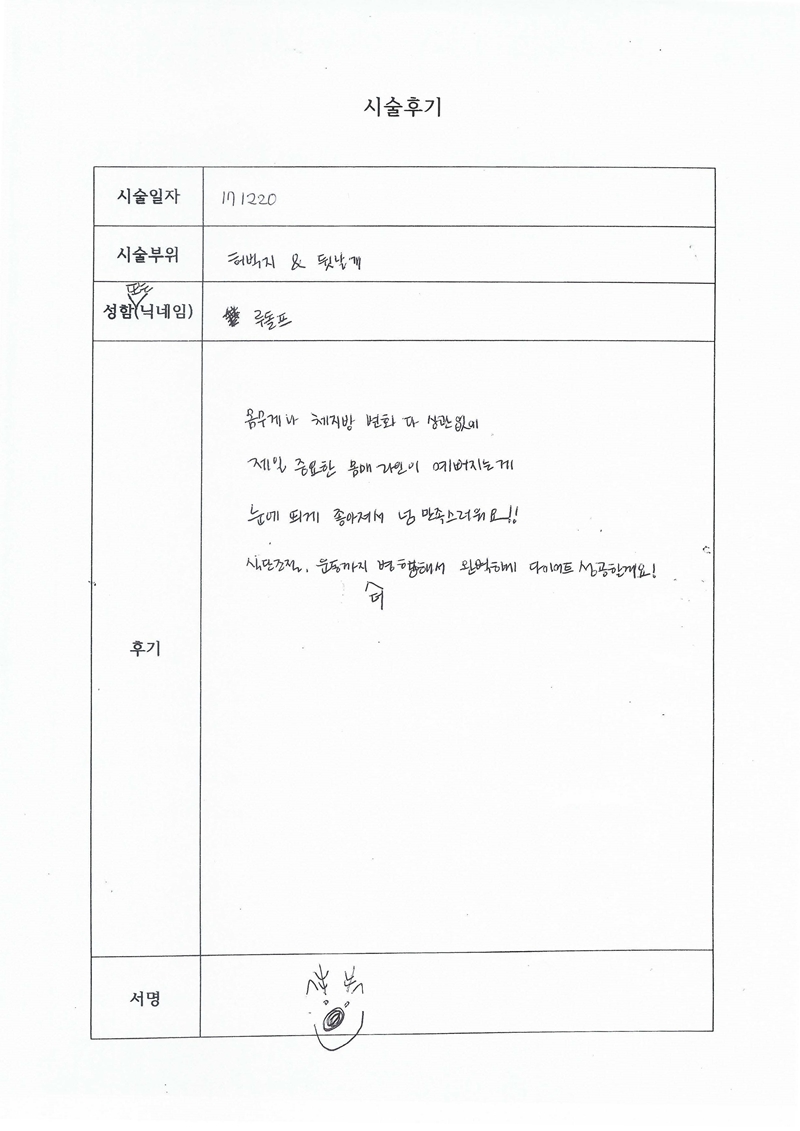 시술후기
시술일자 171220
시술부위 허벅지 & 뒷날개
또는
성함(닉네임) 루돌프
몸무게나 체지방 변화 다 상관없이
제일 중요한 몸매 라인이 예뻐지는게
눈에 띄게 좋아져서 넘 만족스러워요!!
식단조절, 운동까지 병행해서 완벽하게 다이어트 성공할게요!
더
후기
서명